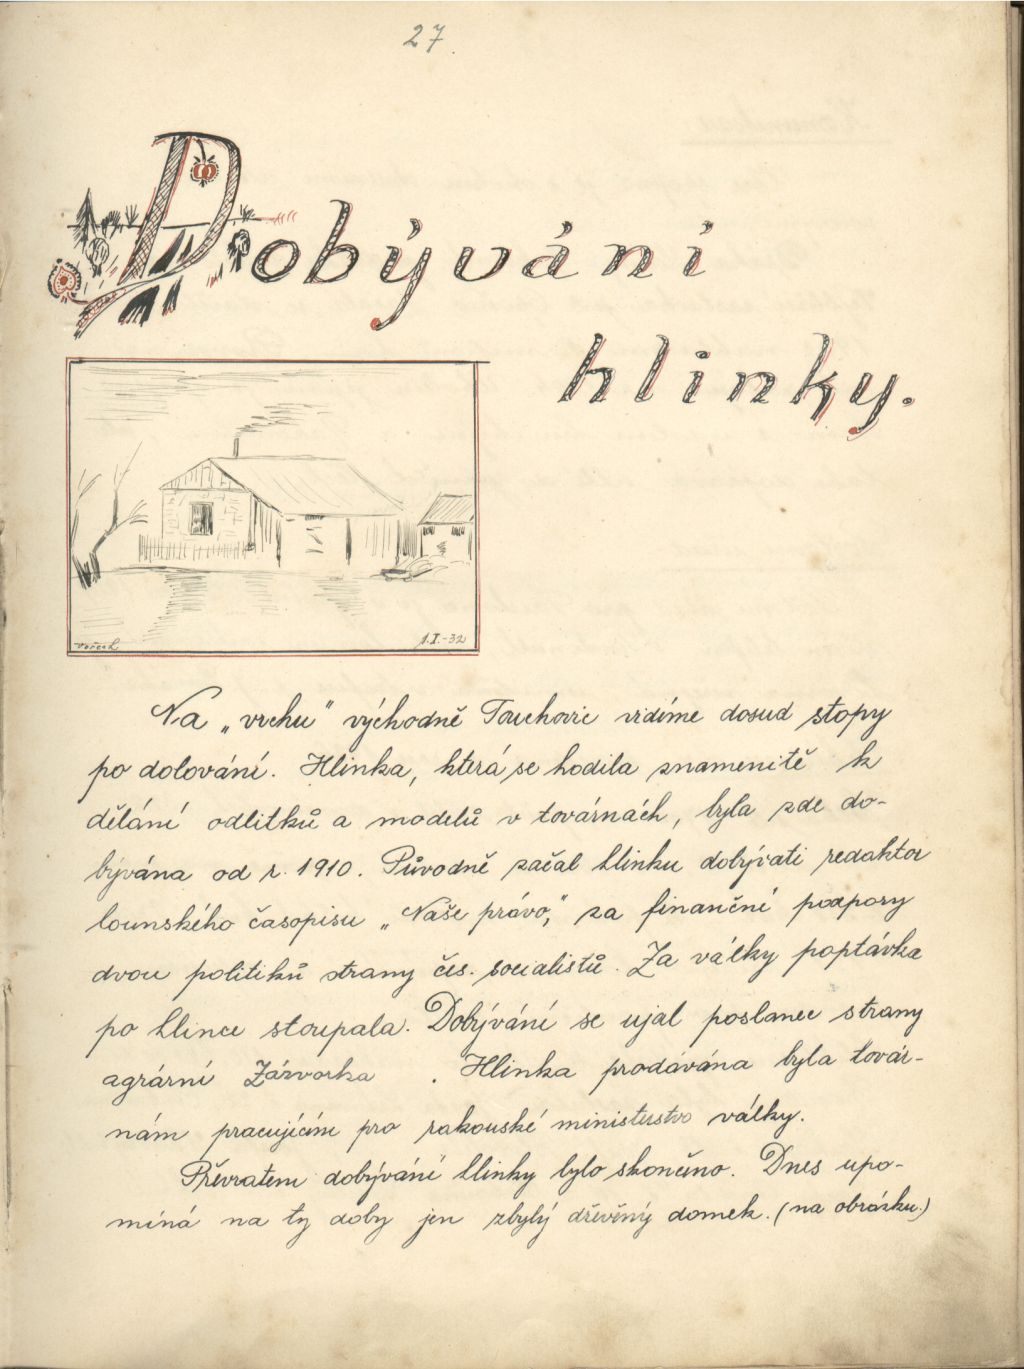 27.
Dobývání
hlinky.
1.I.-32
Na „vrchu" východně Touchovic vidíme dosud stopy
po dolování. Hlinka, která se hodila znamenitě k
dělání odlitků a modelů v továrnách, byla zde do-
bývána od r. 1910. Původně začal hlinku dobývati redaktor
lounského časopisu „Naše právo," za finanční podpory
dvou politiků strany čes. socialistů. Za války poptávka
po hlince stoupala. Dobývání se ujal poslanec strany
agrární Zázvorka . Hlinka prodávána byla továr-
nám pracujícím pro rakouské ministerstvo války.
Převratem dobývání hlinky bylo skončeno. Dnes upo-
míná na ty doby jen zbylý dřevěný domek. (na obrázku.)